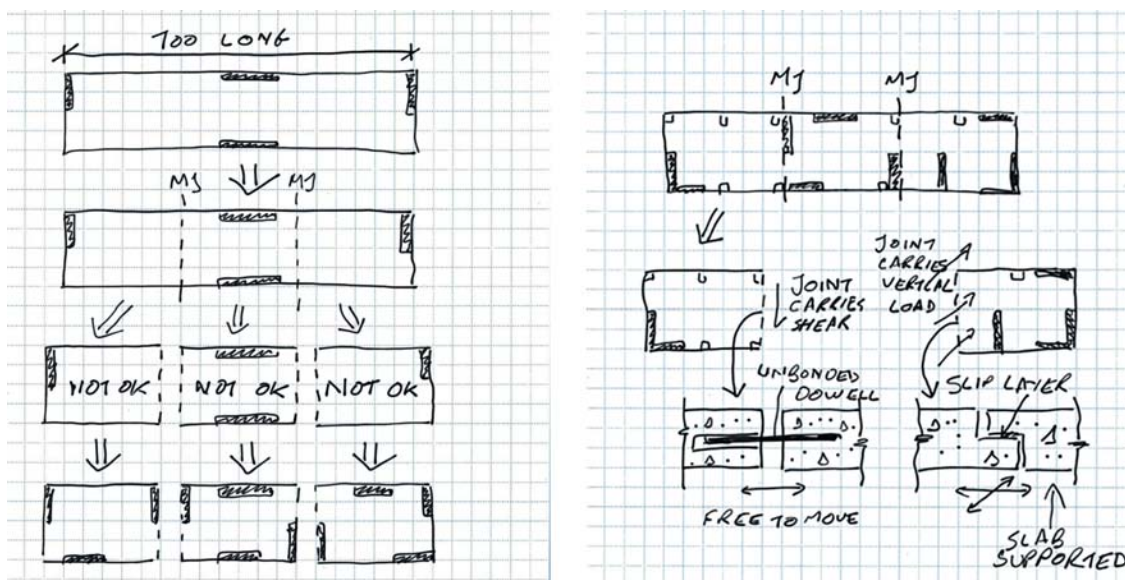 TOO LONG
MJ
MJ
NOT OK
NOT OK
NOT OK
MJ
MJ
JOINT
CARRIES
SHEAR
JOINT
CARRIES
VERTICAL
LOAD
UNBONDED
DOWELL
SLIP LAYER
FREE TO MOVE
SLAB
SUPPORTED